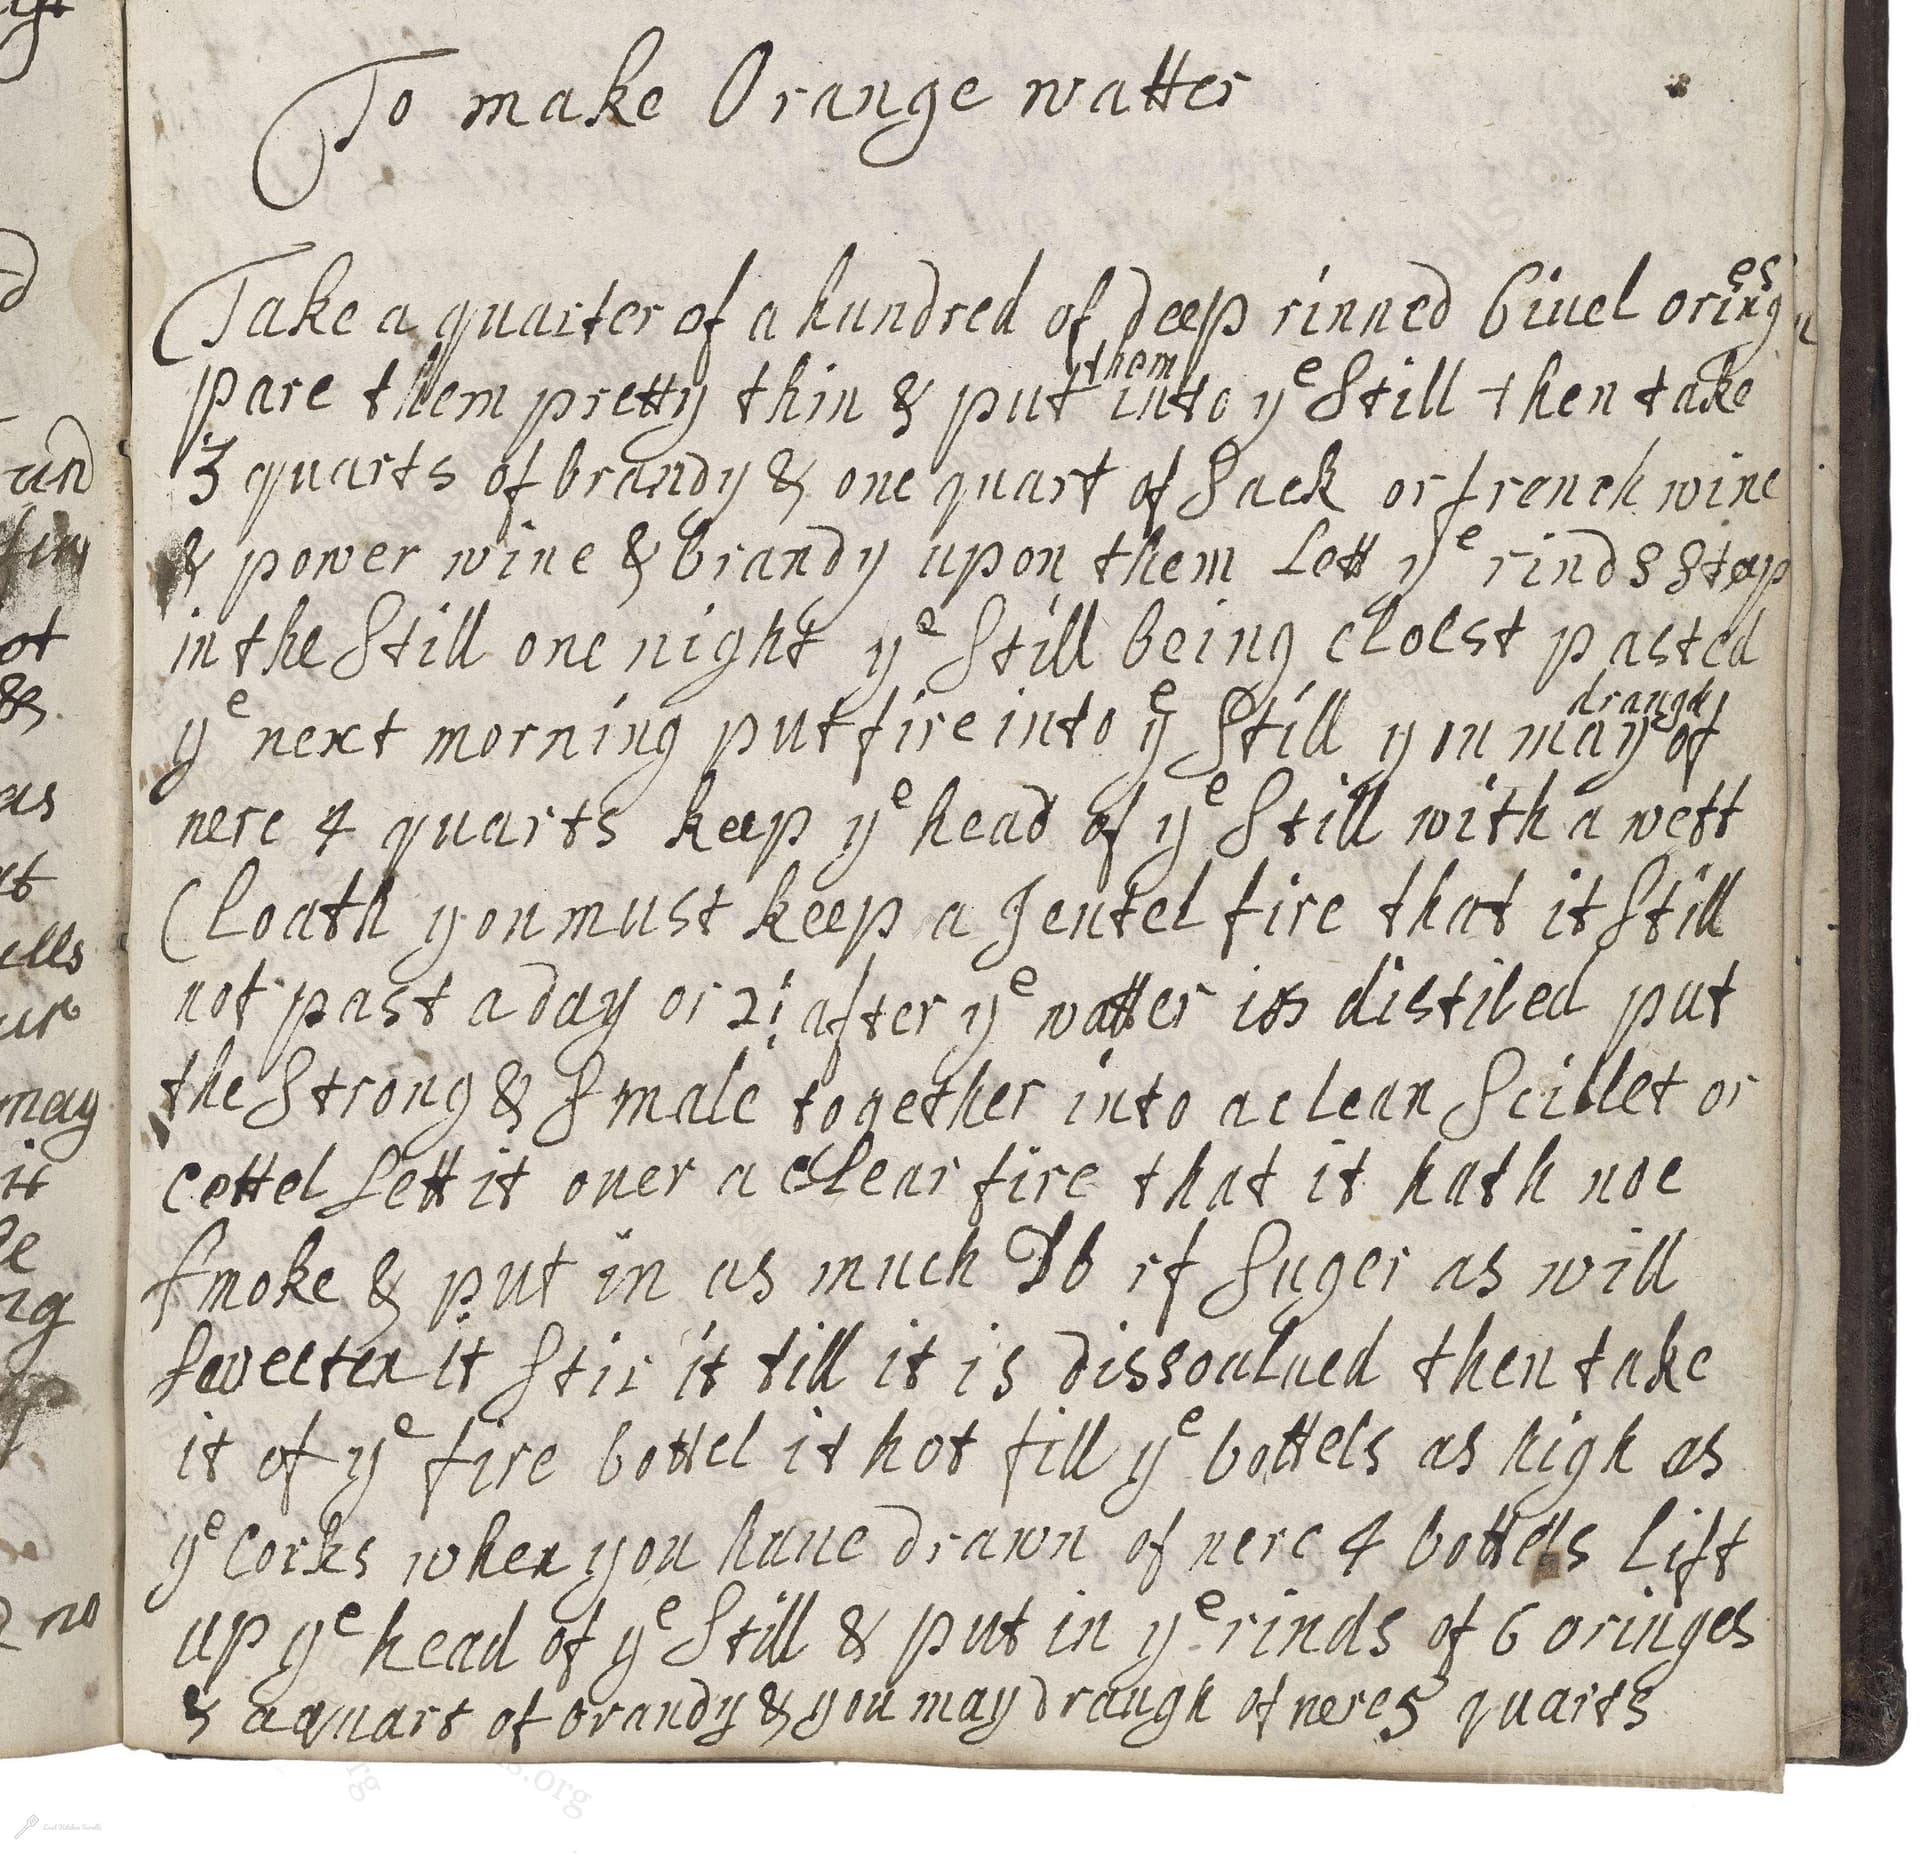 To make Orange watter
Take a quarter of a hundred of deep rinned Civel oringes
pare them pretty thin & put them into ye Still then take
3 quarts of brandy & one quart of Sack or french wine
& power wine & brandy upon them Lett ye rinds Steep
in the Still one night ye Still being cloest pasted
ye next morning put fire into ye Still you may draugh of
nere 4 quarts keep ye head of ye Still with a wett
Cloath you must keep a Jentel fire that it Still
not past a day or 2: after ye watter is distiled put
the Strong & Smale together into a clean Scillet or
cettel Sett it over a clear fire that it hath noe
Smoke & put in as much lb of Suger as will
Sweeten it Stir it till it is dissoulued then take
it of ye fire bottel it hot fill ye bottels as high as
ye Corks when you haue drawn of nere 4 bottels lift
up ye head of ye Still & put in ye rinds of 6 oringes
& a quart of brandy & you may draugh of nere 5 quarts
and
ot
&
as
ells
ur
may
it
ng
no